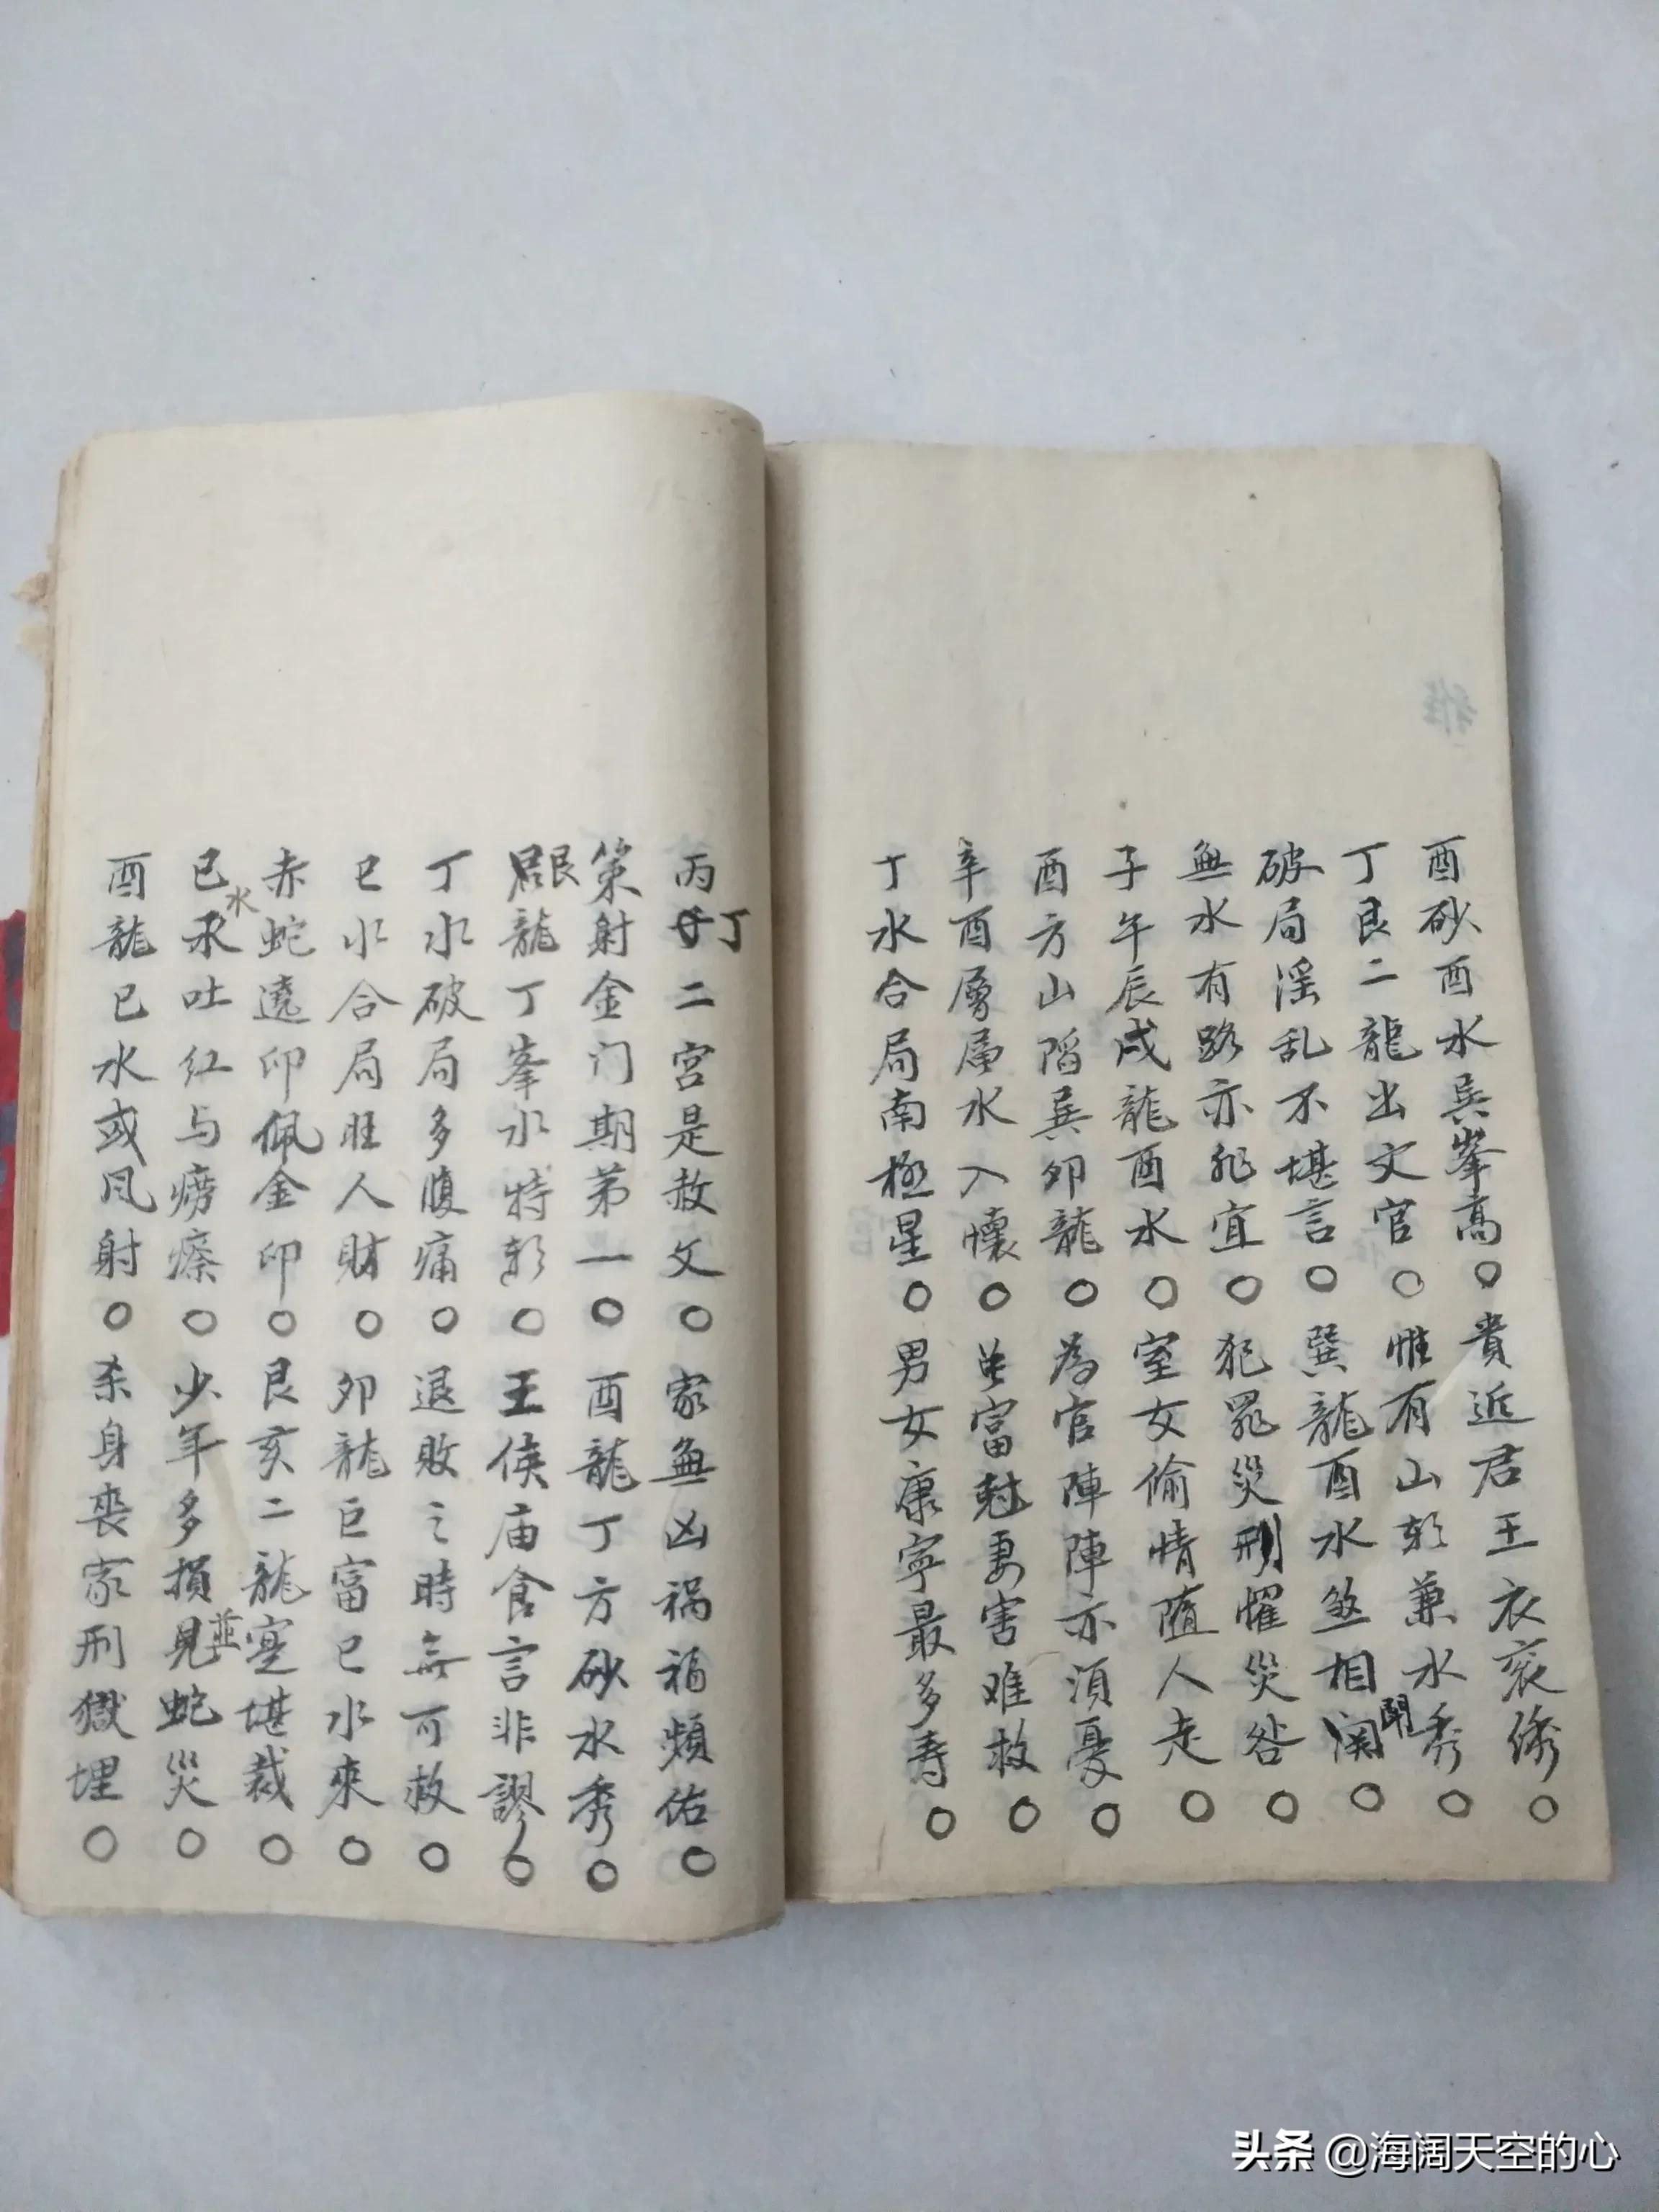 酉砂酉水巽峯高○貴近君王衣衮绣○
丁艮二龍出文官○惟有山彰兼水秀○
破局滛乱不堪言○巽龍酉水煞相闘○
無水有路亦非宜○犯罪災刑懼災咎○
子午辰戌龍酉水○室女偷情随人走○
酉方山陷巽卯龍○為官陣陣亦須憂○
辛酉層層水入懷○虽富尅妻害难救○
丁水合局南極星○男女康寧最多寿○
丙丁二宮是赦文○家無凶禍福頻佑○
策射金门期第一○酉龍丁方砂水秀○
艮龍丁峯水特彰○王侯庙食言非謬○
丁水破局多腹痛○退敗之時無可救○
巳水合局旺人财○卯龍巨富巳水來○
赤蛇遶印佩金印○艮亥二龍寔堪裁○
巳水吐红与痨瘵○少年多損並蛇災○
酉龍巳水或风射○杀身喪家刑獄埋○
头条 @海阔天空的心